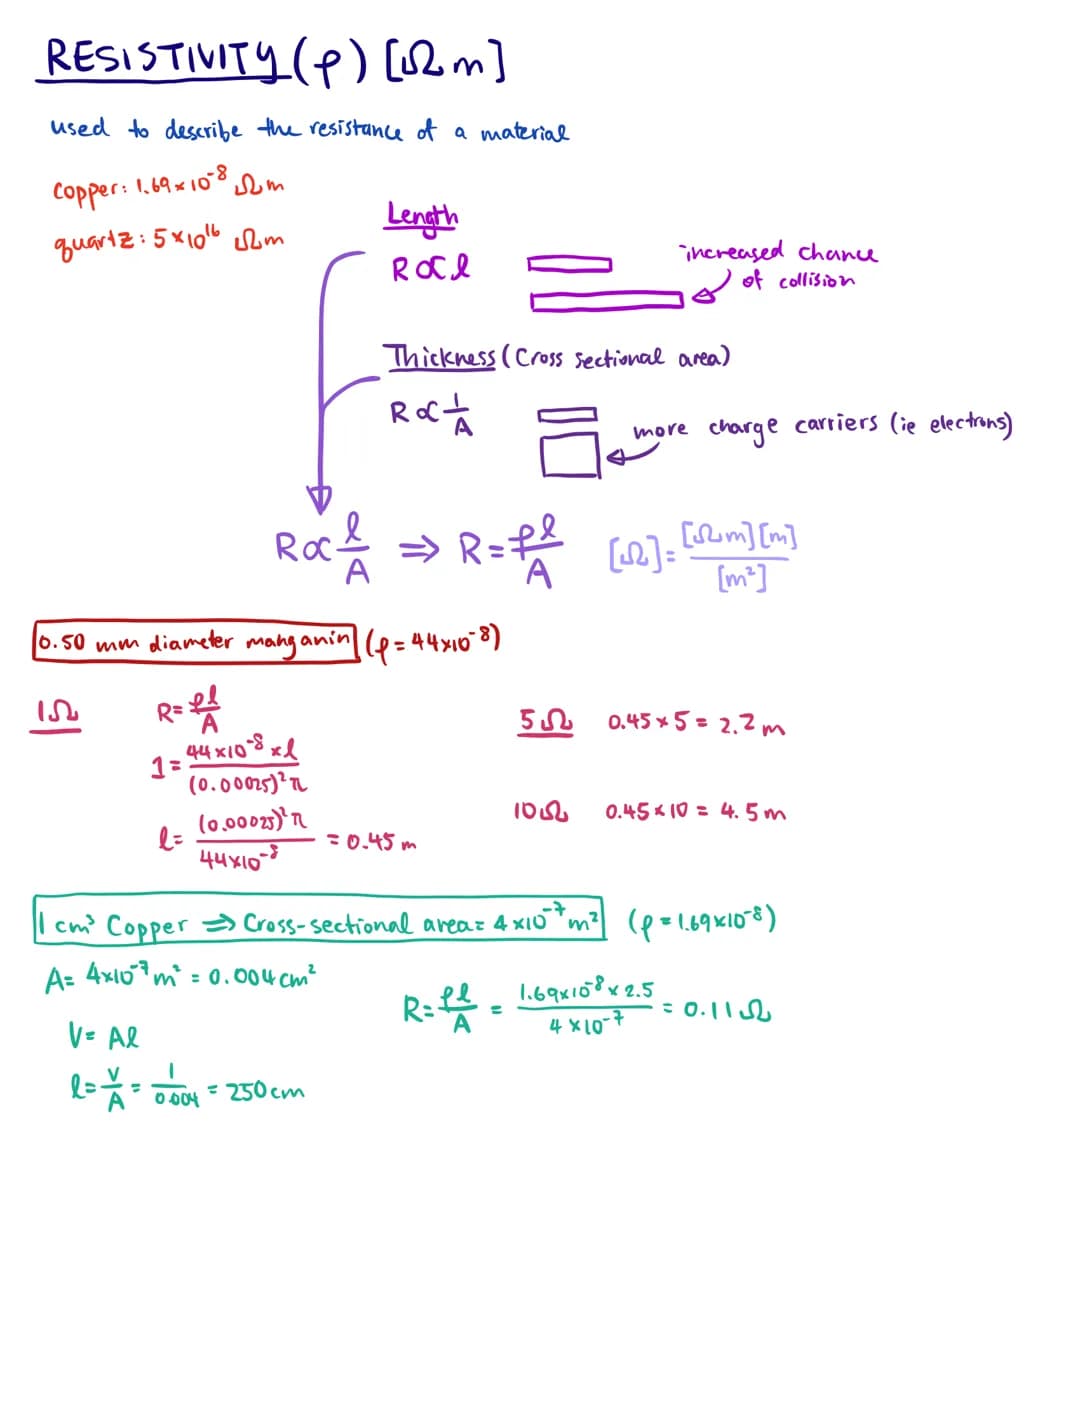 RESISTIVITY (ρ) [Ωm]
used to describe the resistance of a material
copper: 1.69 × 10⁻⁸ Ωm
quartz: 5 × 10¹⁶ Ωm
Length
R ∝ l
increased chance
of collision
Thickness (Cross sectional area)
R ∝ 1/A
more charge carriers (ie electrons)
R ∝ l/A ⇒ R = ρl/A [Ω] = [Ωm][m]/[m²]
0.50 mm diameter manganin (ρ = 44×10⁻⁸)
1Ω R = ρl/A
1 = 44×10⁻⁸ × l/(0.00025)²π
l = (0.00025)²π/44×10⁻⁸ = 0.45 m
5Ω 0.45 × 5 = 2.2 m
10Ω 0.45 × 10 = 4.5 m
1 cm³ Copper ⇒ Cross-sectional area = 4 ×10⁻⁷ m² (ρ = 1.69×10⁻⁸)
A = 4×10⁻⁷ m² = 0.004 cm²
V = Al
l = V/A = 1/0.004 = 250 cm
R = ρl/A = 1.69×10⁻⁸ × 2.5/4 ×10⁻⁷ = 0.11Ω